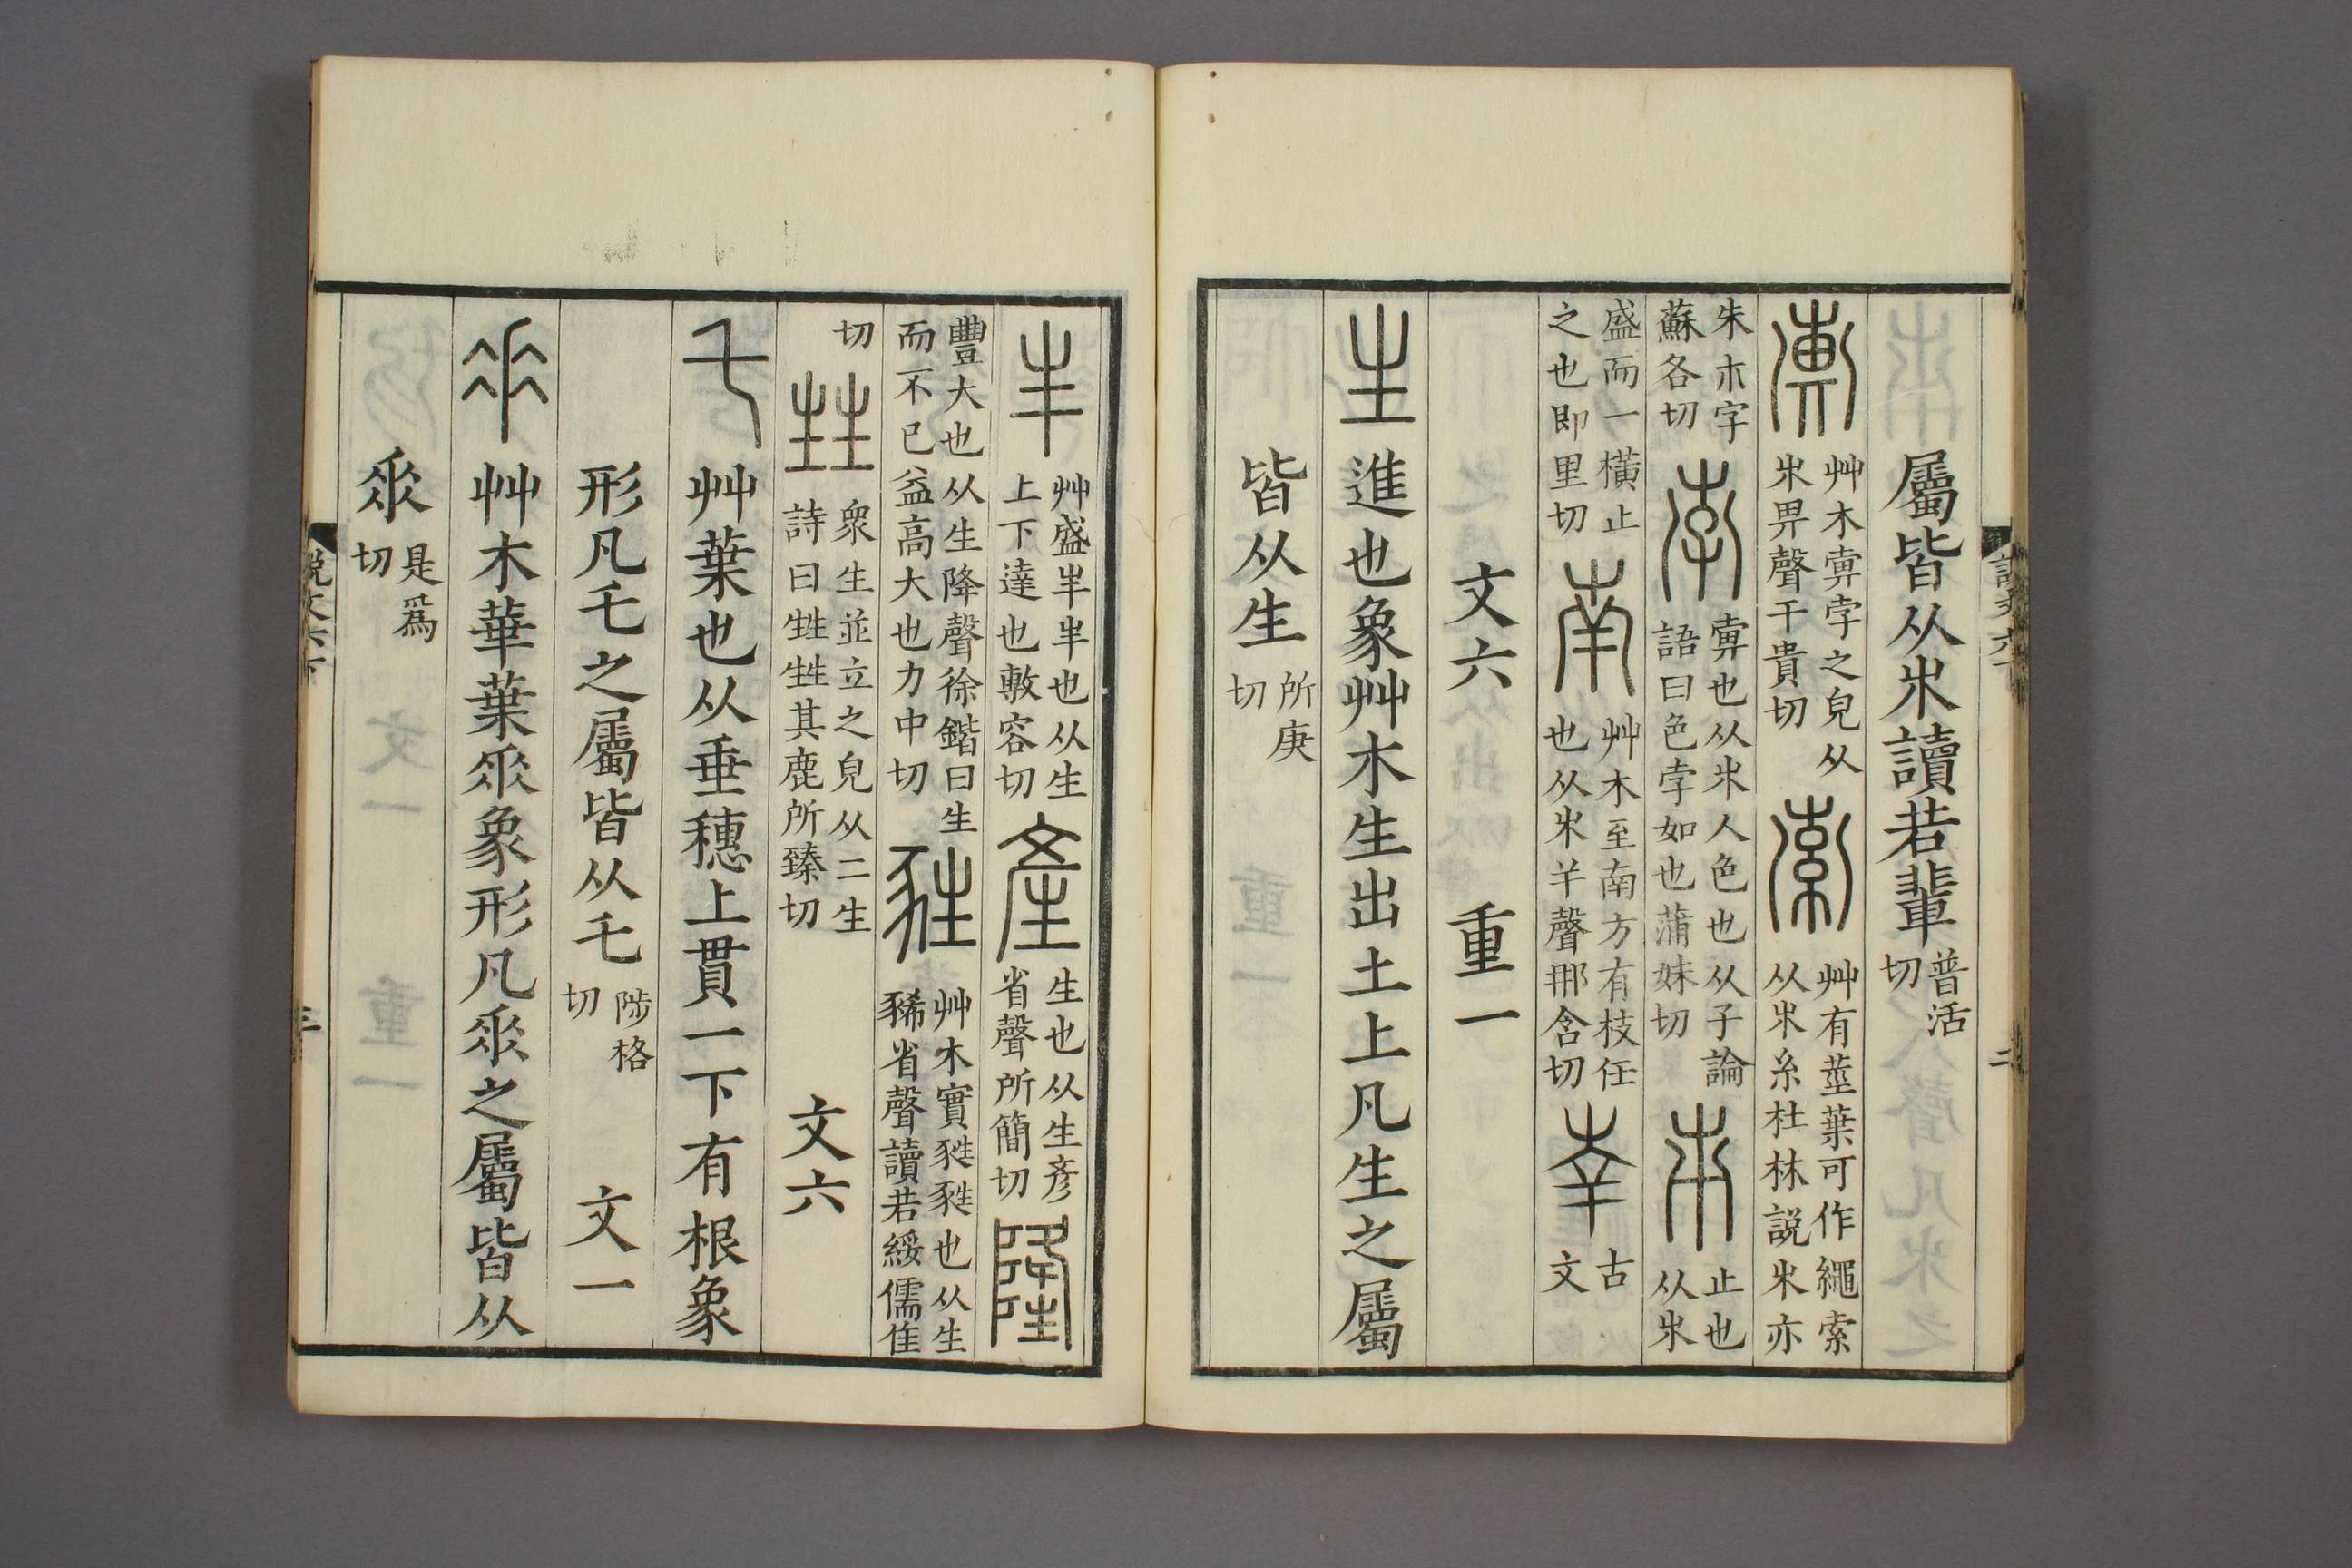 屬皆从𣎵讀若輩普活切
𣠔艸木𣠔孛之皃从𣎵畀聲于貴切索艸有莖葉可作繩索从𣎵糸杜林說𣎵亦
朱木字蘇各切孛𣠔也从𣎵人色也从子論語曰色孛如也蒲妹切𣎵止也从𣎵
盛而一橫止之也即里切南艸木至南方有枝任也从𣎵𢆉聲那含切𡴖古文
文六 重一
生進也象艸木生出土上凡生之屬
皆从生所庚切
丰艸盛丰丰也从生上下達也敷容切產生也从生彥省聲所簡切隆
豐大也从生降聲徐鍇曰生而不已益高大也力中切甤艸木實甤甤也从生豨省聲讀若綏儒隹
切甡眾生並立之皃从二生詩曰甡甡其鹿所臻切 文六
乇艸葉也从垂穗上貫一下有根象
形凡乇之屬皆从乇陟格切 文一
𠂹艸木華葉𠂹象形凡𠂹之屬皆从
𠂹是爲切
說文六下
三
二